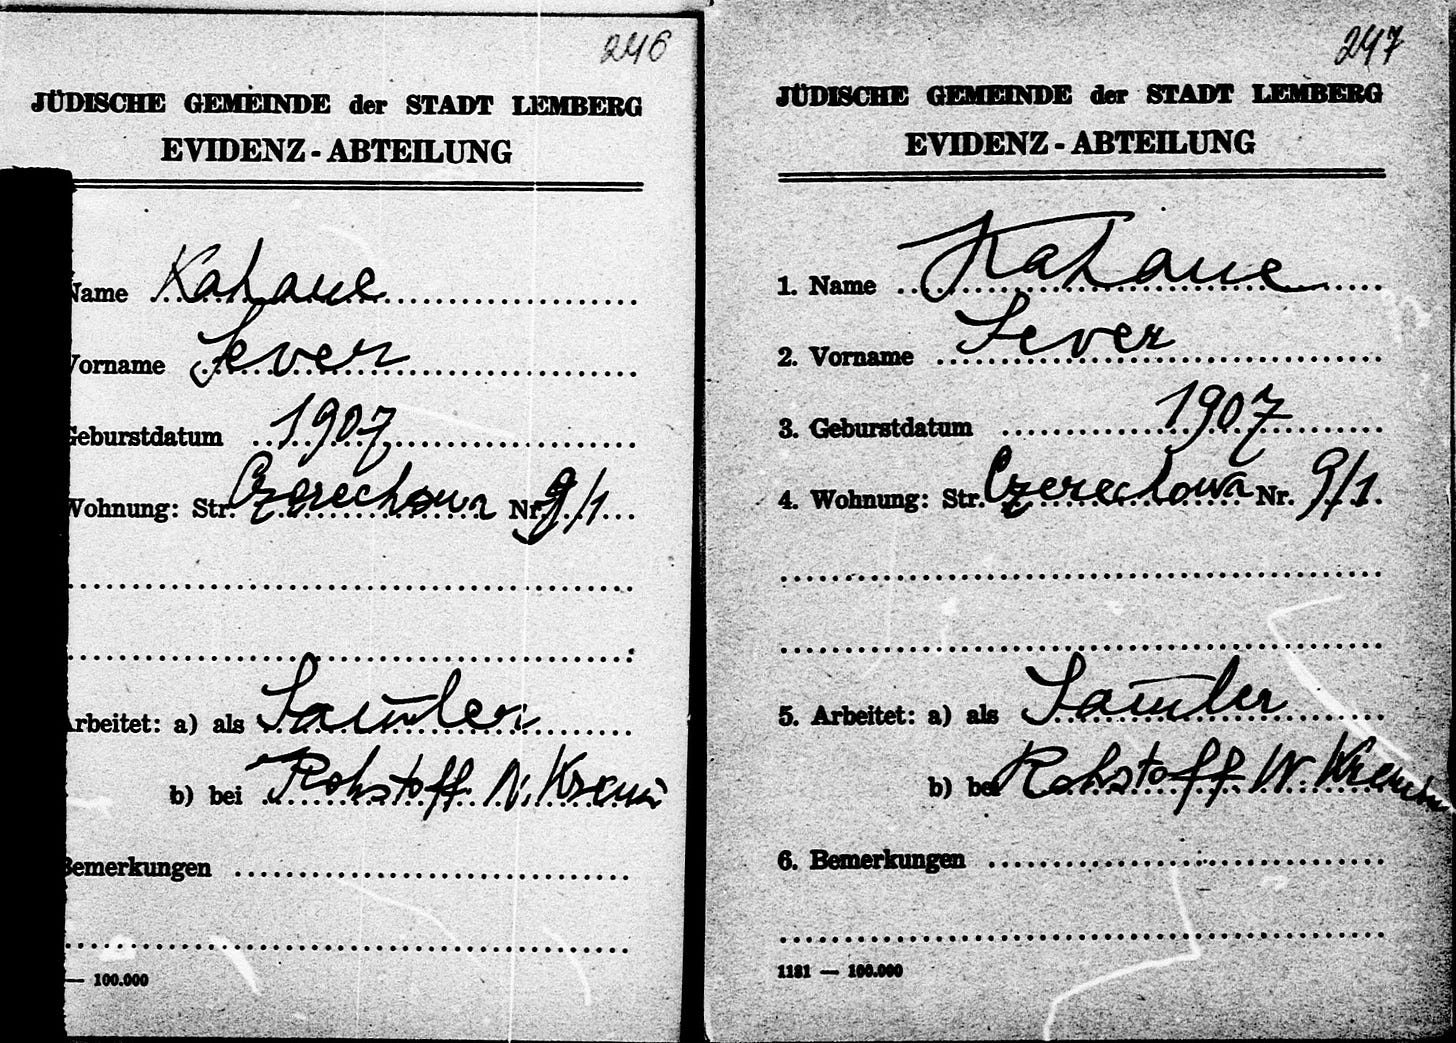 246
JÜDISCHE GEMEINDE der STADT LEMBERG
EVIDENZ-ABTEILUNG
Name Kahane
Vorname Sever
Geburstdatum 1907
Wohnung: Str. Czerechowa Nr. 9/1
Arbeitet: a) als
b) bei Rohstoff
Bemerkungen
— 100.000
247
JÜDISCHE GEMEINDE der STADT LEMBERG
EVIDENZ-ABTEILUNG
1. Name Kahane
2. Vorname Sever
3. Geburstdatum 1907
4. Wohnung: Str. Czerechowa Nr. 9/1.
5. Arbeitet: a) als
b) bei Rohstoff
6. Bemerkungen
1181 — 100.000